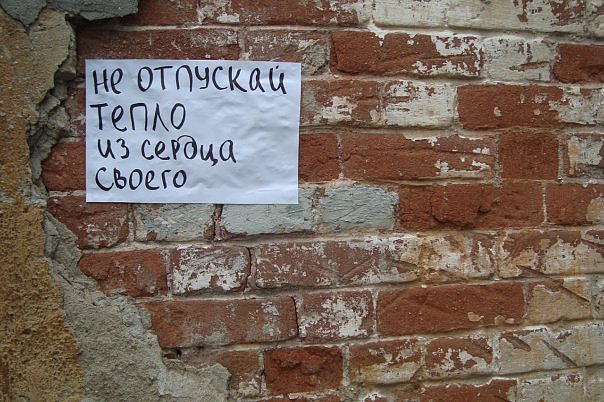 не отпускай
тепло
из сердца
своего